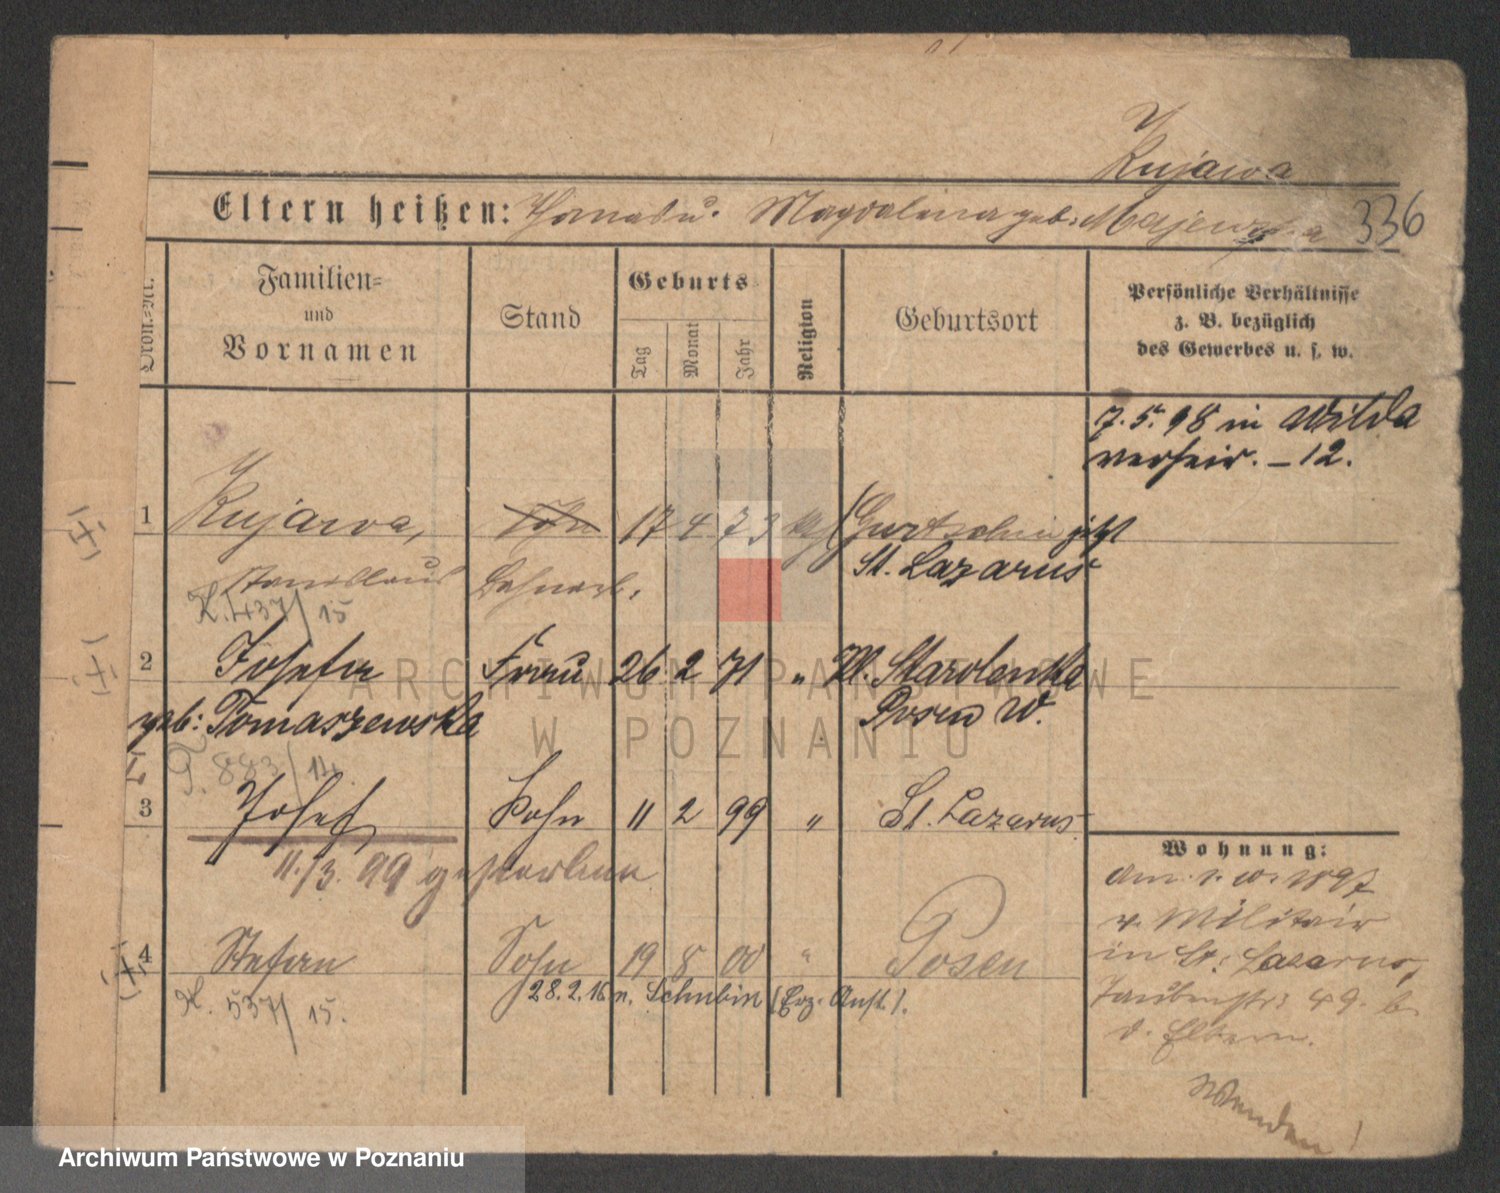 Kujawa
Eltern heißen: Thomas u. Magdalena geb. Majewska 336
Ordn.-Nr.
Familien-
und
Vornamen
Stand
Geburts-
Tag
Monat
Jahr
Religion
Geburtsort
Persönliche Verhältnisse
z. B. bezüglich
des Gewerbes u. s. w.
7.5.98 in Wilda
verheir. – 12.
1 Kujawa, Sohn 17 4 73 Gurtschin jetzt
St. Lazarus
Stanislaus
K. 437/15
2 Josefa Frau 26 2 71 " Kl. Starolenka
geb: Tomaszewska Posen W.
P. 883/14
3 Josef Sohn 11 2 99 " St. Lazarus
11./3. 99 gestorben
4 Stefan Sohn 19 8 00 " Posen
28.2.16 n. Schubin (Erz. Anst.).
K. 537/15.
Wohnung:
Am 1. 10. 1897
v. Militair
in St. Lazarus,
49. b.
d. Eltern.
Wenden!
ARCHIWUM PAŃSTWOWE
W POZNANIU
Archiwum Państwowe w Poznaniu